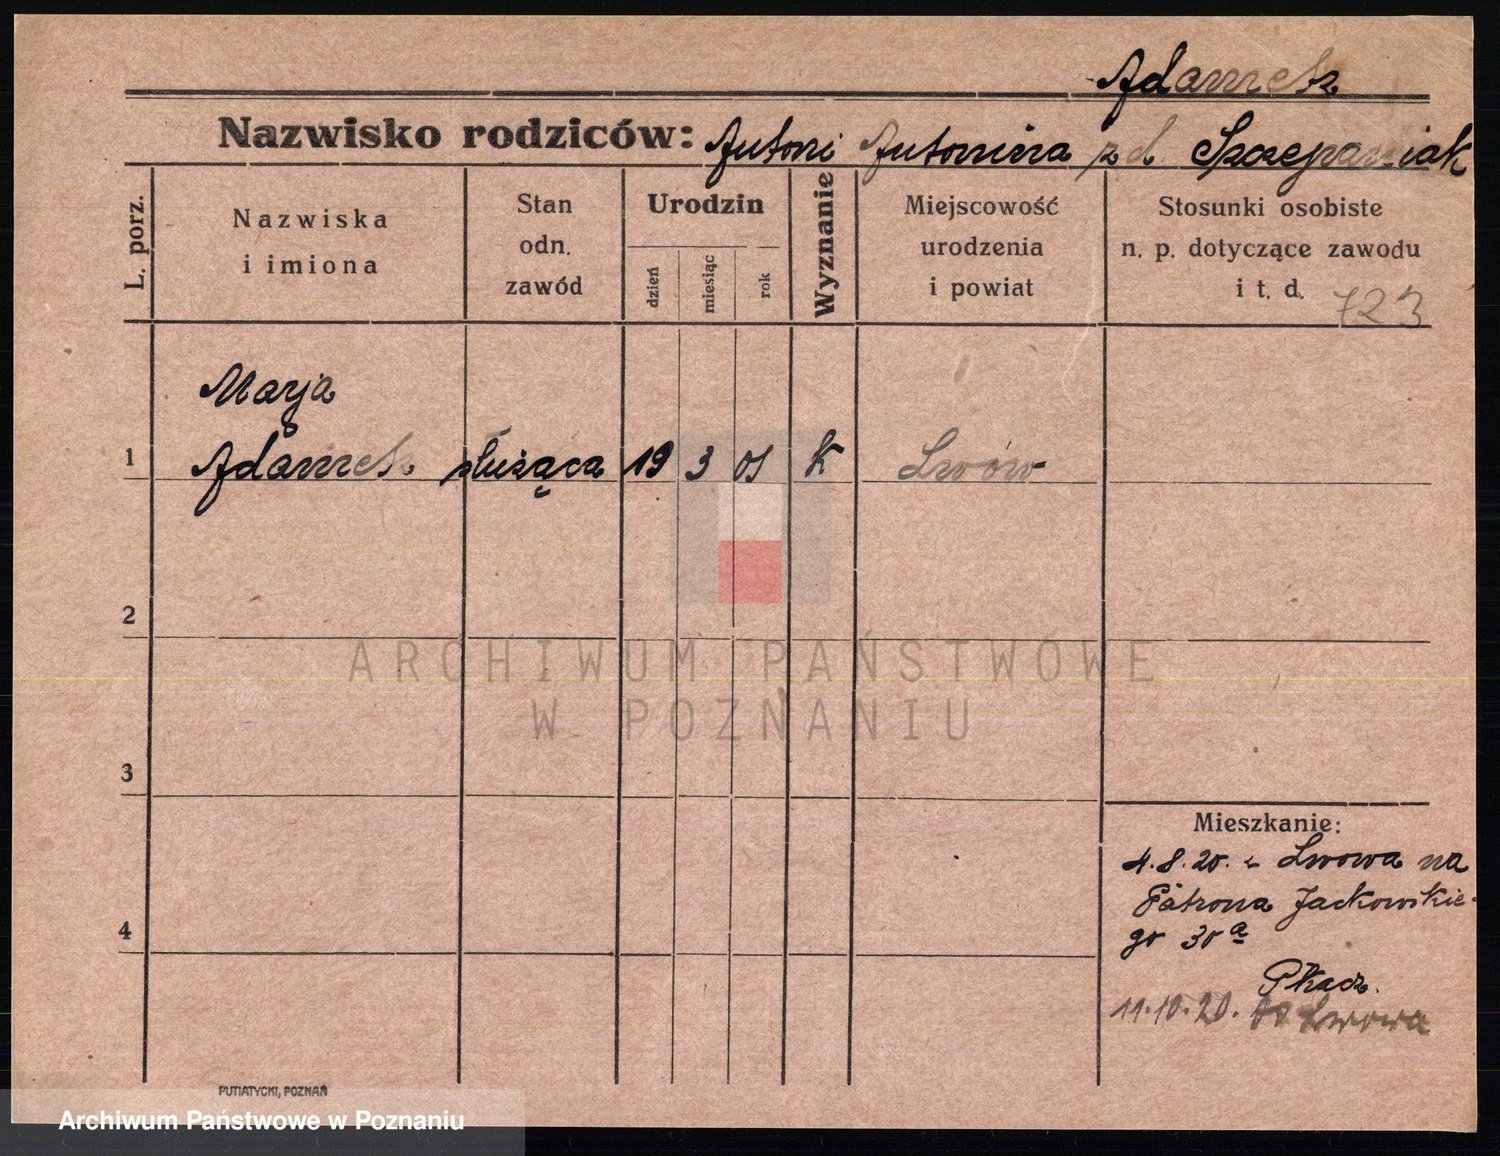 Adamek
Nazwisko rodziców: Antoni Antonina zd. Szczepaniak
L. porz.
Nazwiska
i imiona
Stan
odn.
zawód
Urodzin
dzień
miesiąc
rok
Wyznanie
Miejscowość
urodzenia
i powiat
Stosunki osobiste
n. p. dotyczące zawodu
i t. d. 723
Marja
1 Adamek służąca 19 3 01 k Lwów
2
ARCHIWUM PAŃSTWOWE
W POZNANIU
3
Mieszkanie:
4.8.20. z Lwowa na
Patrona Jackowskie-
4
go 30 a
11.10.20. do Lwowa
PUTIATYCKI, POZNAŃ
Archiwum Państwowe w Poznaniu